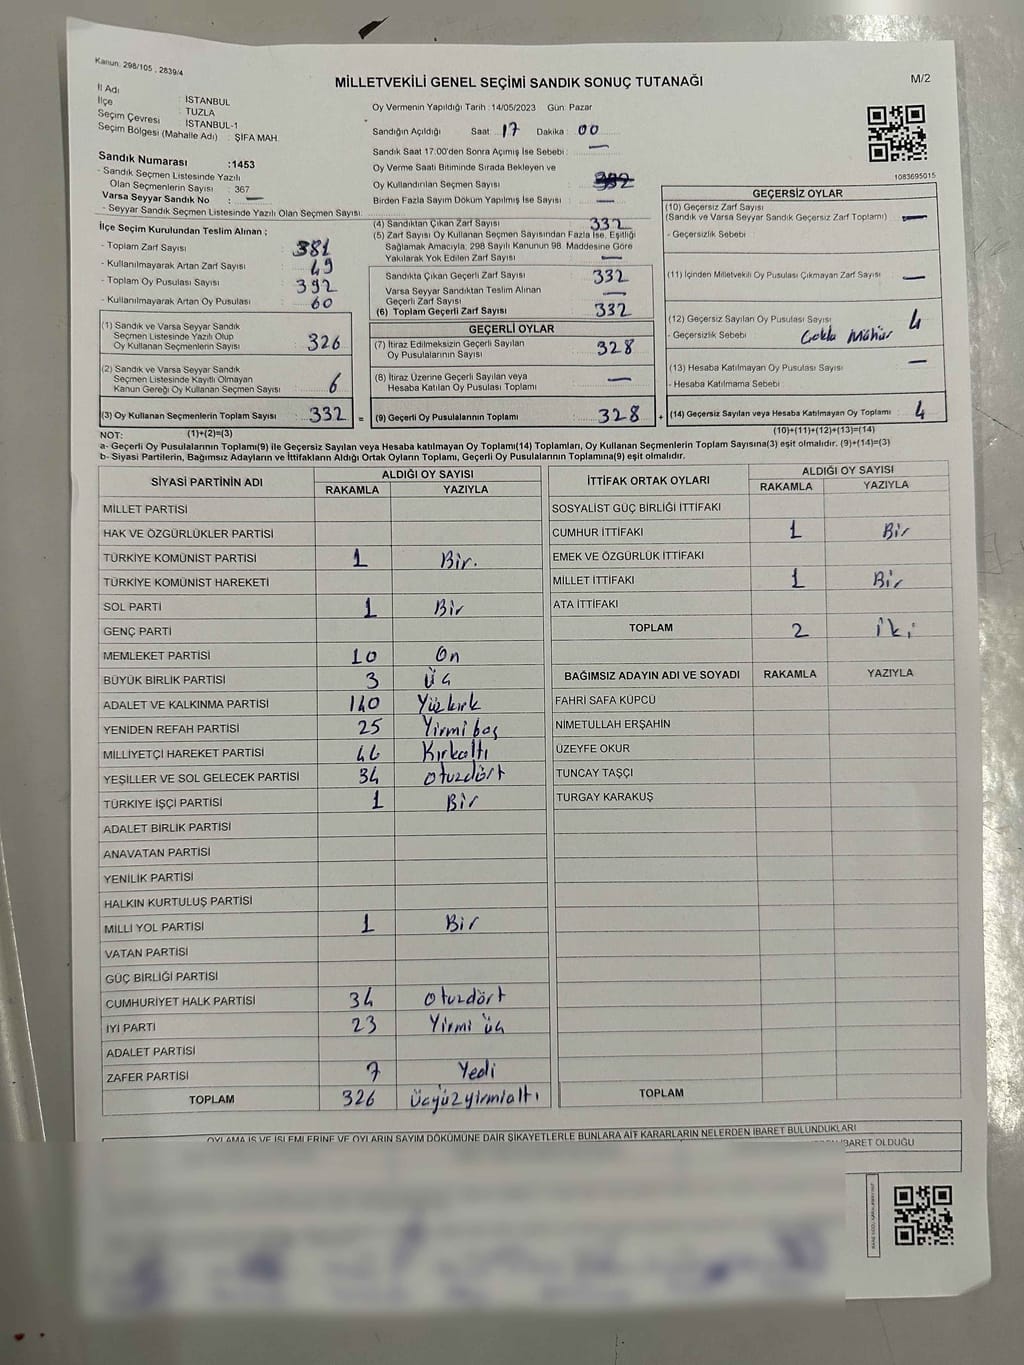 Kanun: 298/105 , 2839/4
MİLLETVEKİLİ GENEL SEÇİMİ SANDIK SONUÇ TUTANAĞI
M/2
İl Adı : İSTANBUL
İlçe : TUZLA
Seçim Çevresi : İSTANBUL-1
Seçim Bölgesi (Mahalle Adı) : ŞİFA MAH.
Sandık Numarası :1453
- Sandık Seçmen Listesinde Yazılı
Olan Seçmenlerin Sayısı : 367
Varsa Seyyar Sandık No : —
- Seyyar Sandık Seçmen Listesinde Yazılı Olan Seçmen Sayısı:
İlçe Seçim Kurulundan Teslim Alınan ;
- Toplam Zarf Sayısı 381
- Kullanılmayarak Artan Zarf Sayısı 49
- Toplam Oy Pusulası Sayısı 392
- Kullanılmayarak Artan Oy Pusulası 60
(1) Sandık ve Varsa Seyyar Sandık
Seçmen Listesinde Yazılı Olup
Oy Kullanan Seçmenlerin Sayısı 326
(2) Sandık ve Varsa Seyyar Sandık
Seçmen Listesinde Kayıtlı Olmayan
Kanun Gereği Oy Kullanan Seçmen Sayısı 6
(3) Oy Kullanan Seçmenlerin Toplam Sayısı 332 =
Oy Vermenin Yapıldığı Tarih :14/05/2023 Gün: Pazar
Sandığın Açıldığı Saat: 17 Dakika : 00
Sandık Saat 17:00'den Sonra Açımış İse Sebebi : —
Oy Verme Saati Bitiminde Sırada Bekleyen ve
Oy Kullandırılan Seçmen Sayısı
Birden Fazla Sayım Döküm Yapılmış İse Sayısı —
(4) Sandıktan Çıkan Zarf Sayısı 332
(5) Zarf Sayısı Oy Kullanan Seçmen Sayısından Fazla İse, Eşitliği
Sağlamak Amacıyla, 298 Sayılı Kanunun 98. Maddesine Göre
Yakılarak Yok Edilen Zarf Sayısı —
Sandıkta Çıkan Geçerli Zarf Sayısı 332
Varsa Seyyar Sandıktan Teslim Alınan
Geçerli Zarf Sayısı —
(6) Toplam Geçerli Zarf Sayısı 332
GEÇERLİ OYLAR
(7) İtiraz Edilmeksizin Geçerli Sayılan
Oy Pusulalarının Sayısı 328
(8) İtiraz Üzerine Geçerli Sayılan veya
Hesaba Katılan Oy Pusulası Toplamı —
(9) Geçerli Oy Pusulalarının Toplamı 328 +
1083695015
GEÇERSİZ OYLAR
(10) Geçersiz Zarf Sayısı
(Sandık ve Varsa Seyyar Sandık Geçersiz Zarf Toplamı) —
- Geçersizlik Sebebi
(11) İçinden Milletvekili Oy Pusulası Çıkmayan Zarf Sayısı —
(12) Geçersiz Sayılan Oy Pusulası Sayısı 4
- Geçersizlik Sebebi Çokla Mühür
(13) Hesaba Katılmayan Oy Pusulası Sayısı —
- Hesaba Katılmama Sebebi
(14) Geçersiz Sayılan veya Hesaba Katılmayan Oy Toplamı 4
NOT: (1)+(2)=(3) (10)+(11)+(12)+(13)=(14)
a- Geçerli Oy Pusulalarının Toplamı(9) ile Geçersiz Sayılan veya Hesaba katılmayan Oy Toplamı(14) Toplamları, Oy Kullanan Seçmenlerin Toplam Sayısına(3) eşit olmalıdır. (9)+(14)=(3)
b- Siyasi Partilerin, Bağımsız Adayların ve İttifakların Aldığı Ortak Oyların Toplamı, Geçerli Oy Pusulalarının Toplamına(9) eşit olmalıdır.
SİYASİ PARTİNİN ADI ALDIĞI OY SAYISI
RAKAMLA YAZIYLA
MİLLET PARTİSİ
HAK VE ÖZGÜRLÜKLER PARTİSİ
TÜRKİYE KOMÜNİST PARTİSİ 1 Bir.
TÜRKİYE KOMÜNİST HAREKETİ
SOL PARTİ 1 Bir
GENÇ PARTİ
MEMLEKET PARTİSİ 10 On
BÜYÜK BİRLİK PARTİSİ 3 Üç
ADALET VE KALKINMA PARTİSİ 140 Yüzkırk
YENİDEN REFAH PARTİSİ 25 Yirmi beş
MİLLİYETÇİ HAREKET PARTİSİ 46 Kırkaltı
YEŞİLLER VE SOL GELECEK PARTİSİ 34 otuzdört
TÜRKİYE İŞÇİ PARTİSİ 1 Bir
ADALET BİRLİK PARTİSİ
ANAVATAN PARTİSİ
YENİLİK PARTİSİ
HALKIN KURTULUŞ PARTİSİ
MİLLİ YOL PARTİSİ 1 Bir
VATAN PARTİSİ
GÜÇ BİRLİĞİ PARTİSİ
CUMHURİYET HALK PARTİSİ 34 otuzdört
İYİ PARTİ 23 Yirmi üç
ADALET PARTİSİ
ZAFER PARTİSİ 7 Yedi
TOPLAM 326 Üçyüzyirmialtı
İTTİFAK ORTAK OYLARI ALDIĞI OY SAYISI
RAKAMLA YAZIYLA
SOSYALİST GÜÇ BİRLİĞİ İTTİFAKI
CUMHUR İTTİFAKI 1 Bir
EMEK VE ÖZGÜRLÜK İTTİFAKI
MİLLET İTTİFAKI 1 Bir
ATA İTTİFAKI
TOPLAM 2 iki
BAĞIMSIZ ADAYIN ADI VE SOYADI RAKAMLA YAZIYLA
FAHRİ SAFA KÜPCÜ
NİMETULLAH ERŞAHİN
ÜZEYFE OKUR
TUNCAY TAŞÇI
TURGAY KARAKUŞ
TOPLAM
OYLAMA İŞ VE İŞLEMLERİNE VE OYLARIN SAYIM DÖKÜMÜNE DAİR ŞİKAYETLERLE BUNLARA AİT KARARLARIN NELERDEN İBARET BULUNDUKLARI
İBARET OLDUĞU